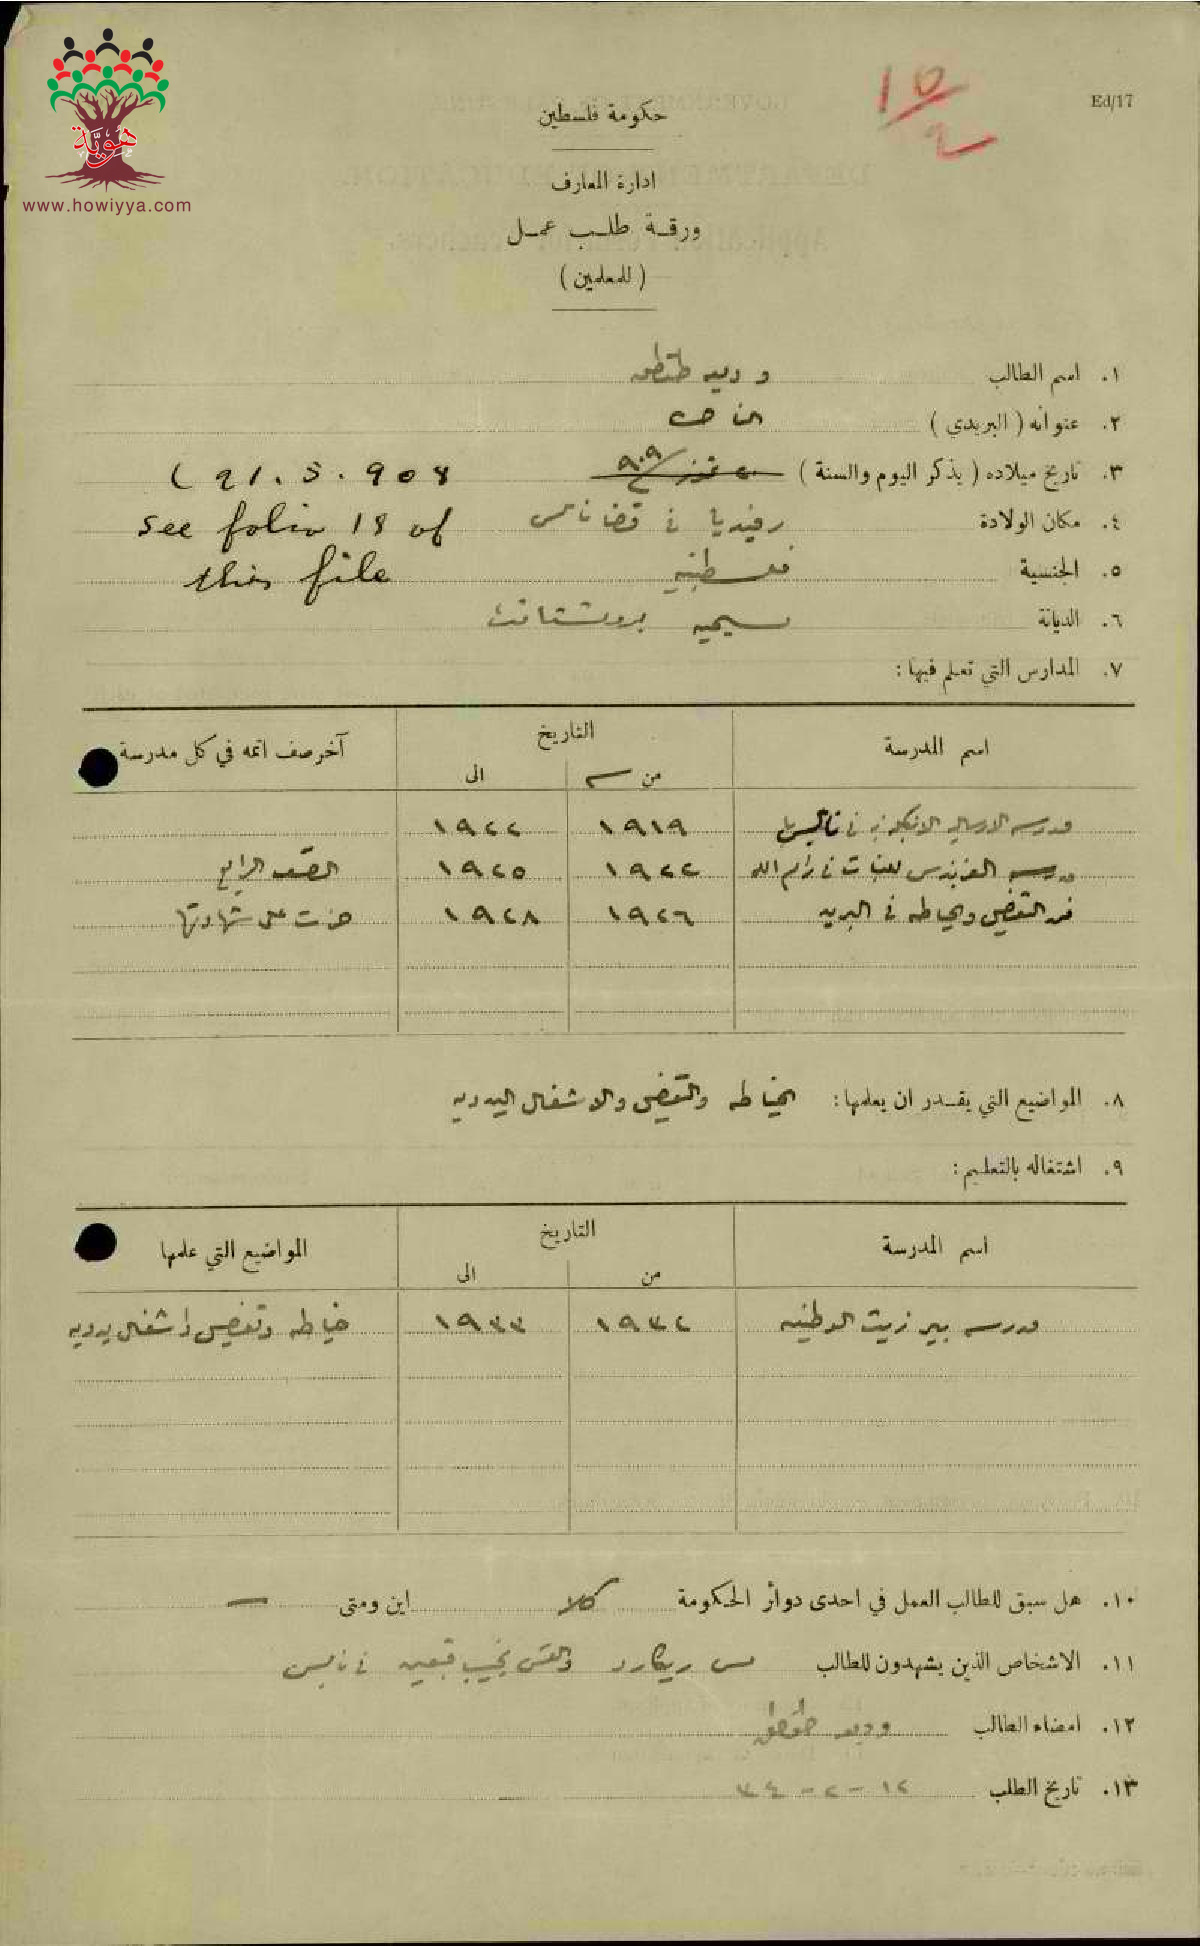 هوية
www.howiyya.com
Ed/17
١٥/٩
حكومة فلسطين
ادارة المعارف
ورقة طلب عمل
( للمعلمين )
١. اسم الطالب وديعه
٢. عنوانه ( البريدي )
٣. تاريخ ميلاده ( يذكر اليوم والسنة ) ٢٠ تموز ٩٠٩
( 21.3.908
see folio 18 of
this file
٤. مكان الولادة رفيديا في قضا نابلس
٥. الجنسية فلسطينيه
٦. الديانة مسيحيه بروتستانت
٧. المدارس التي تعلم فيها :
اسم المدرسة التاريخ آخر صف اتمه في كل مدرسة
من الى
مدرسه الارساليه الانكليزيه في نابلس ١٩١٩ ١٩٢٢
مدرسه الفرندس للبنات في رام الله ١٩٢٢ ١٩٢٥ الصف الرابع
التفصيل والخياطه في ١٩٢٦ ١٩٢٨ حزت على شهادتها
٨. المواضيع التي يقدر ان يعلمها : الخياطه والتفصيل والاشغال اليدويه
٩. اشتغاله بالتعليم :
اسم المدرسة التاريخ المواضيع التي علمها
من الى
مدرسه بير زيت الوطنيه ١٩٣٢ ١٩٣٣ خياطه وتفصيل واشغال يدويه
١٠. هل سبق للطالب العمل في احدى دوائر الحكومة كلا اين ومتى —
١١. الاشخاص الذين يشهدون للطالب مس ريكارد والقس نجيب قبعين في نابلس
١٢. امضاء الطالب وديعه
١٣. تاريخ الطلب ١٢-٢-٣٤